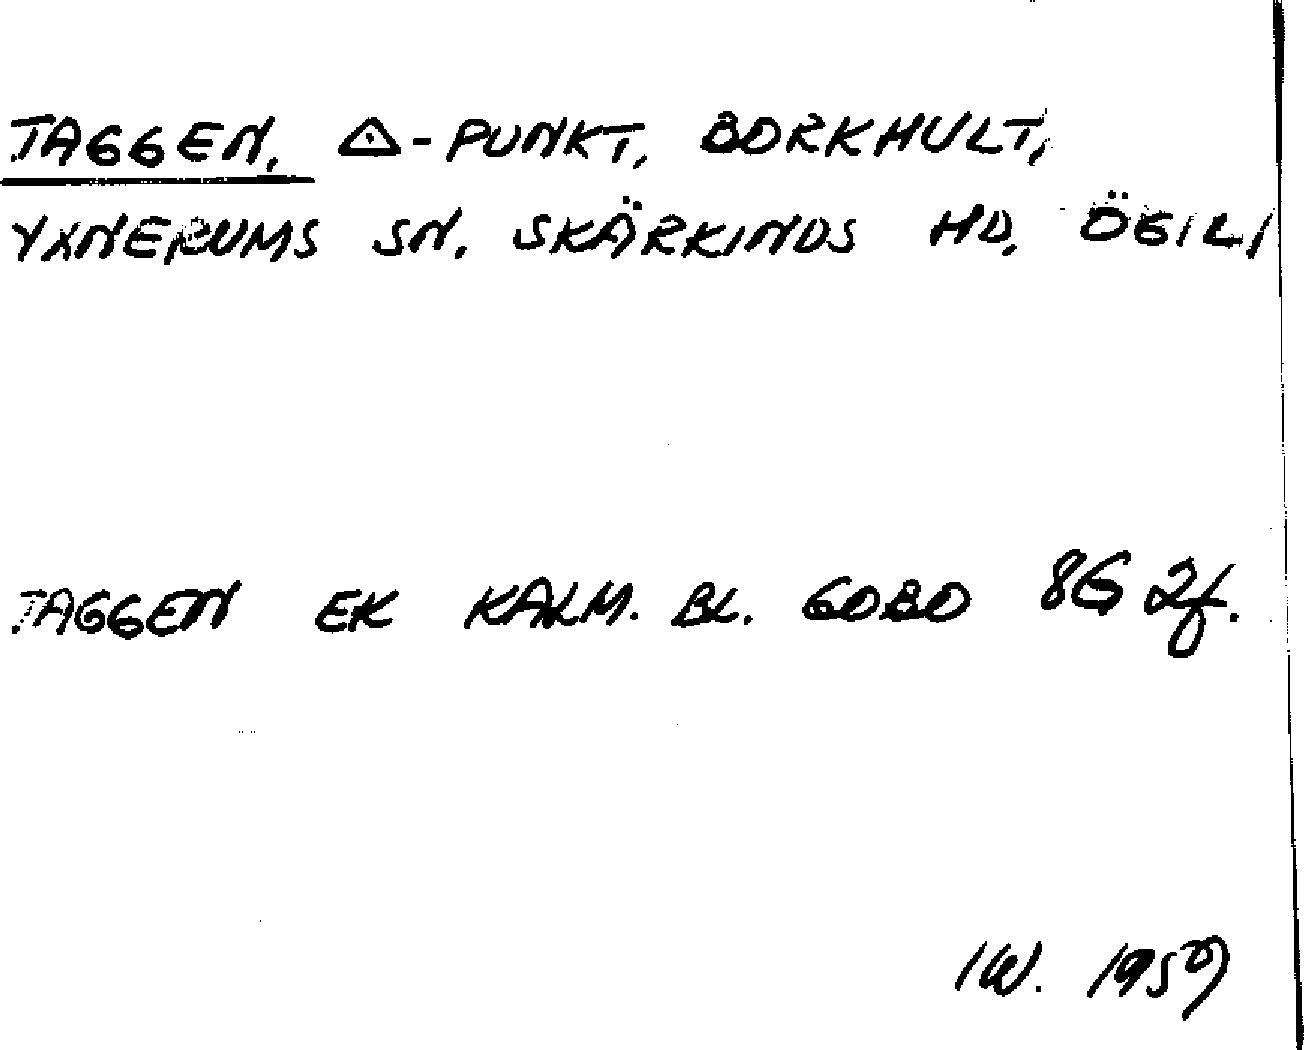 TAGGEN, △-PUNKT, BORKHULT,
YXNERUMS SN. SKÄRKINDS HD, ÖGTL,
TAGGEN EK KALM. BL. GOBO 8G 2f.
IW. 1959